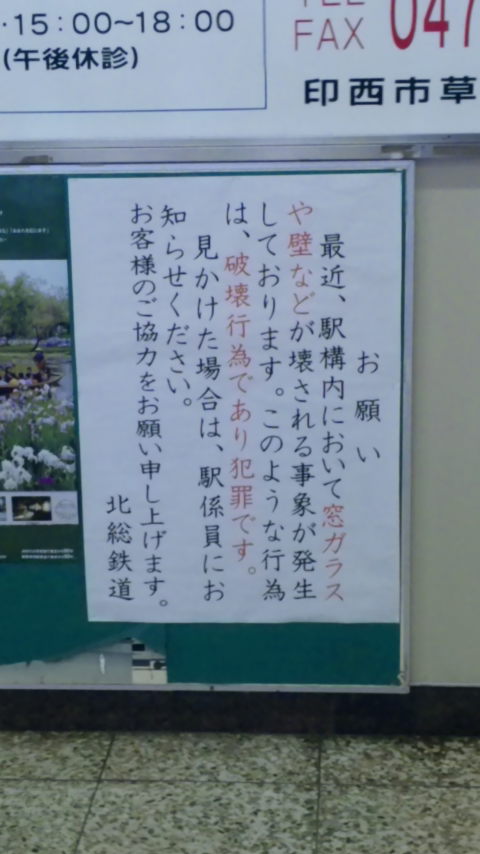 ・15：00〜18：00
(午後休診)
FAX 047
印西市草
お願い
最近、駅構内において窓ガラス
や壁などが壊される事象が発生
しております。このような行為
は、破壊行為であり犯罪です。
見かけた場合は、駅係員にお
知らせください。
お客様のご協力をお願い申し上げます。
北総鉄道